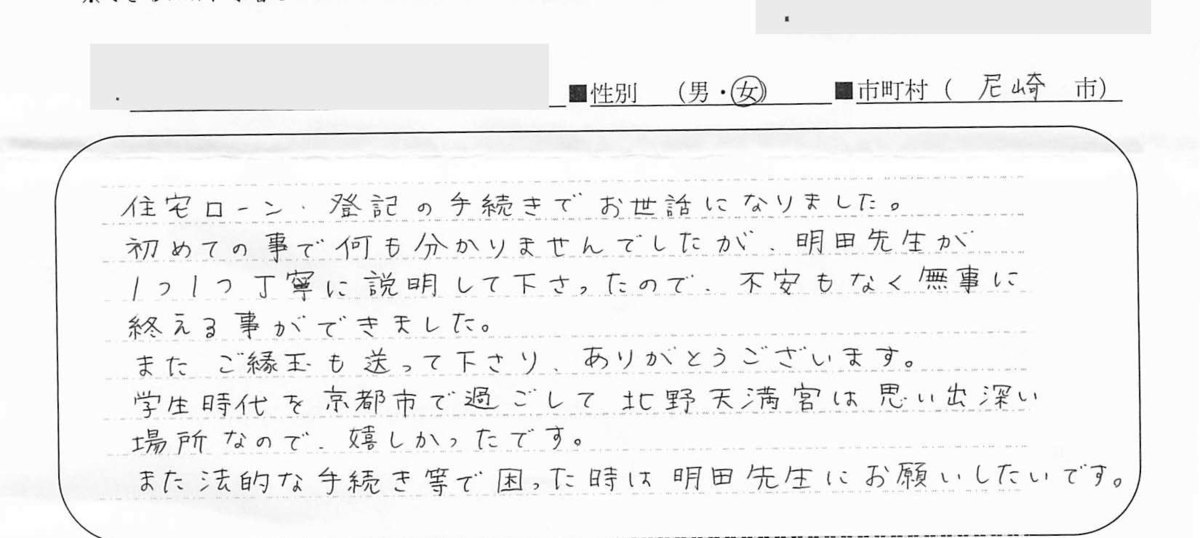 ■性別 (男・女) ■市町村 ( 尼崎 市)
住宅ローン・登記の手続きでお世話になりました。
初めての事で何も分かりませんでしたが、明田先生が
1つ1つ丁寧に説明して下さったので、不安もなく無事に
終える事ができました。
また ご縁玉も送って下さり、ありがとうございます。
学生時代を京都市で過ごして北野天満宮は思い出深い
場所なので、嬉しかったです。
また法的な手続き等で困った時は明田先生にお願いしたいです。